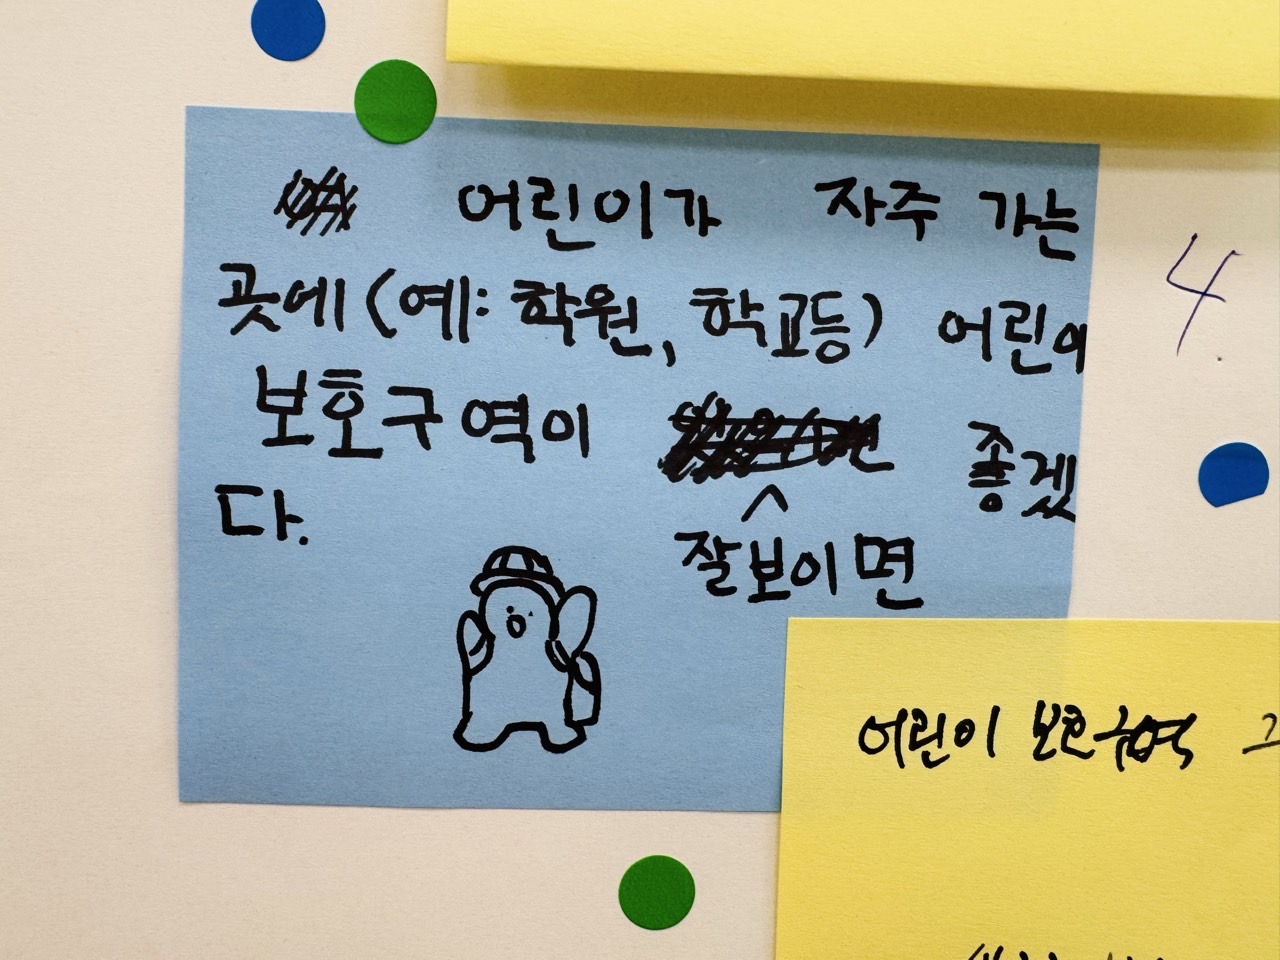 어린이가 자주 가는
곳에 (예: 학원, 학교등) 어린이
보호구역이 잘보이면 좋겠
다.
4.
어린이 보호구역